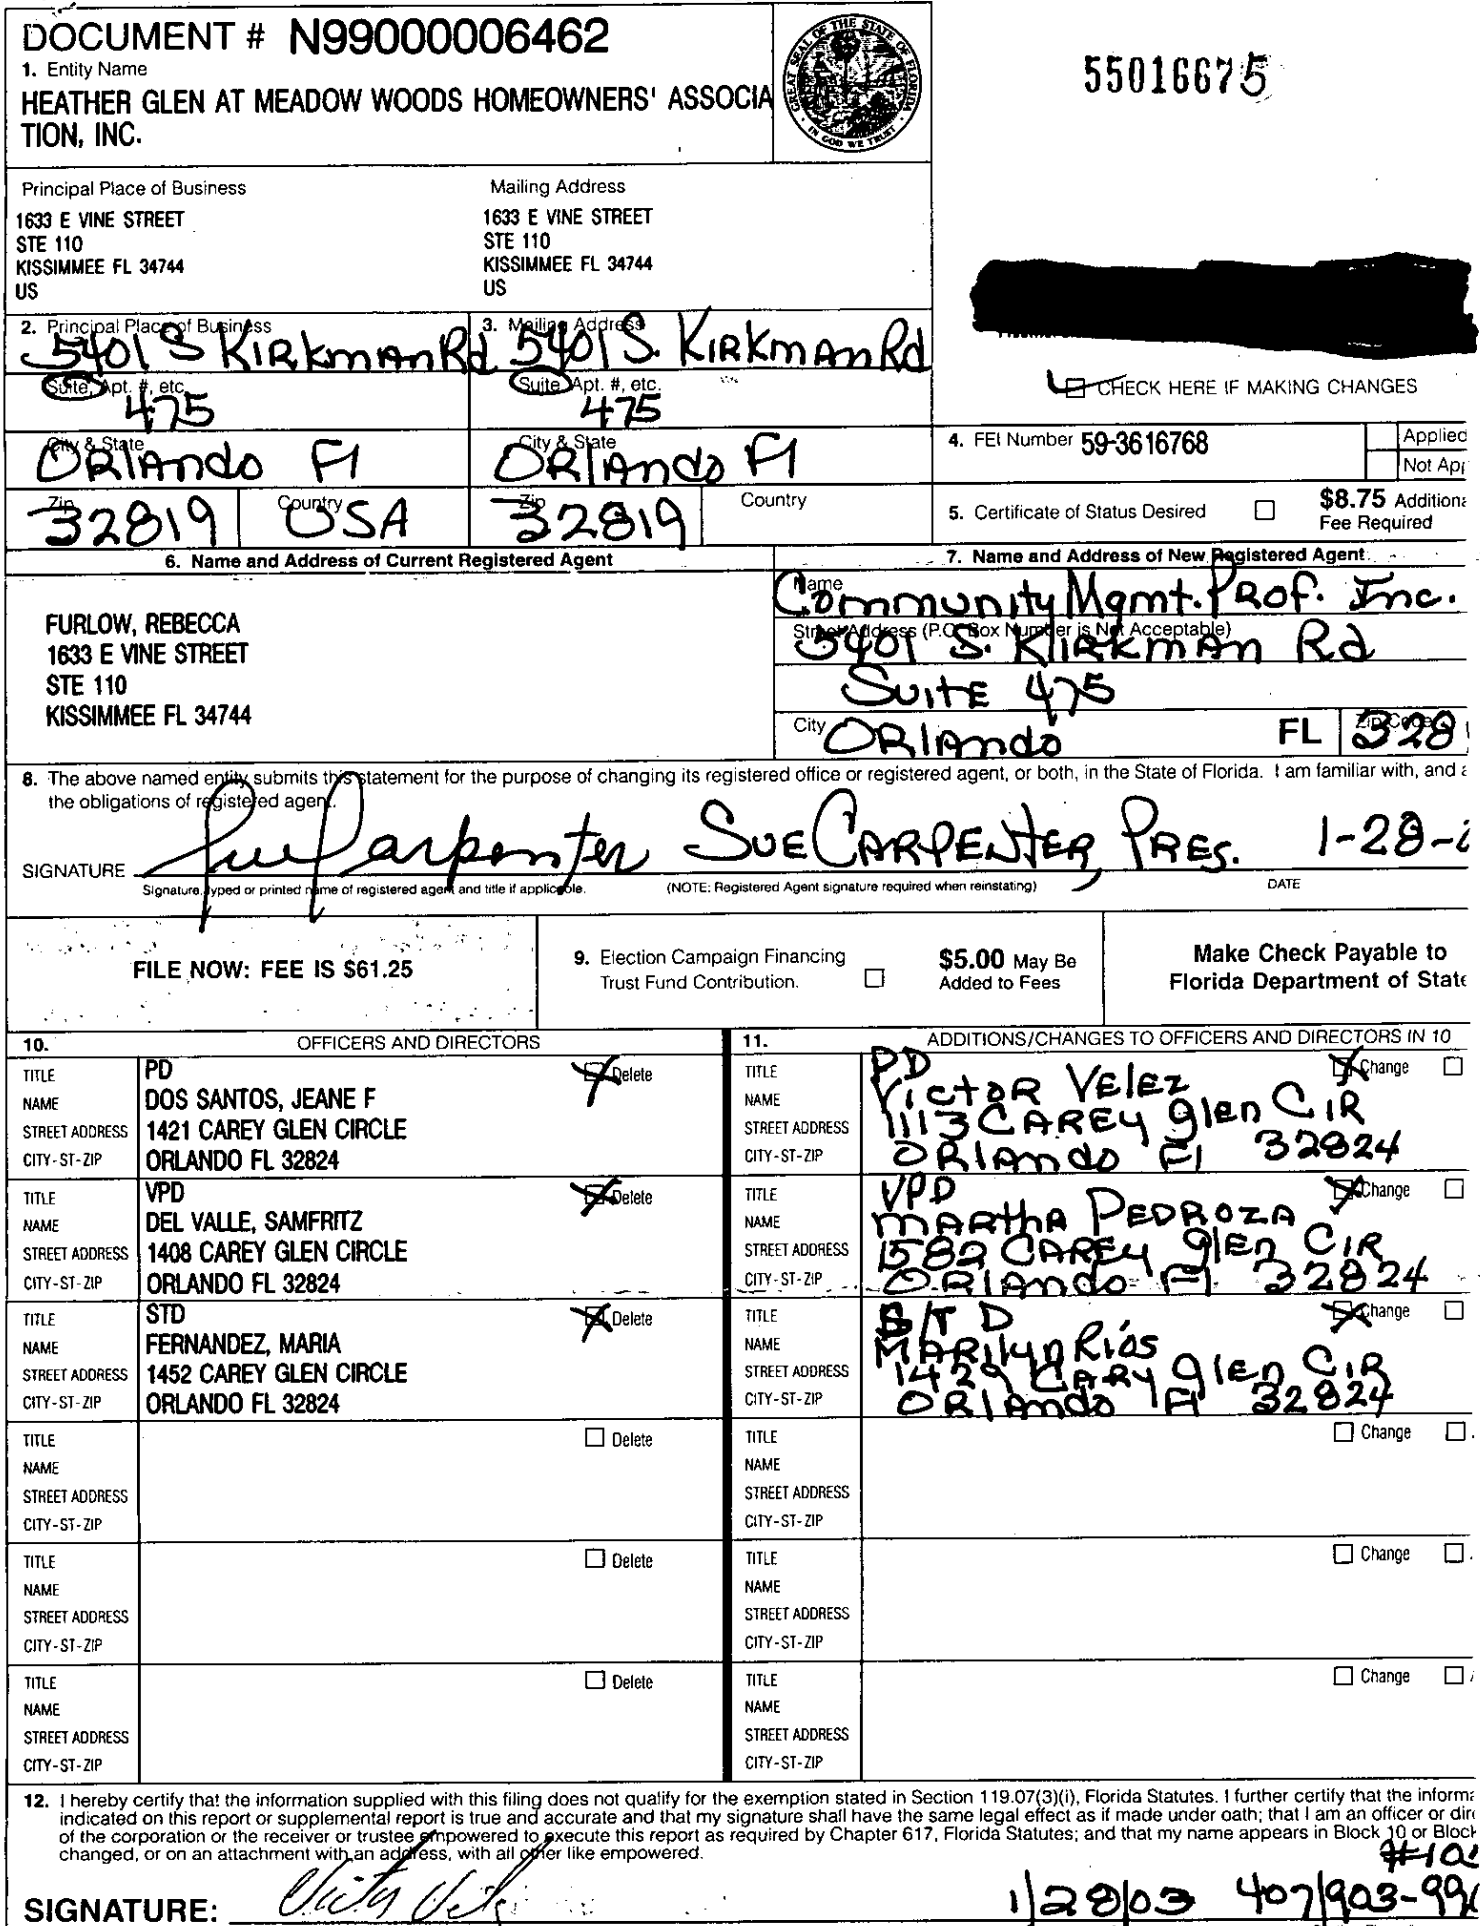 DOCUMENT # N99000006462
1. Entity Name
HEATHER GLEN AT MEADOW WOODS HOMEOWNERS' ASSOCIA
TION, INC.
GREAT SEAL OF THE STATE OF FLORIDA
IN GOD WE TRUST
55016675
Principal Place of Business
1633 E VINE STREET
STE 110
KISSIMMEE FL 34744
US
Mailing Address
1633 E VINE STREET
STE 110
KISSIMMEE FL 34744
US
2. Principal Place of Business
5401 S KIRKmAnRd
3. Mailing Address
5401 S. KIRKmAnRd
CHECK HERE IF MAKING CHANGES
Suite, Apt. #, etc.
475
Suite, Apt. #, etc.
475
City & State
ORlAndo Fl
City & State
ORlAndo Fl
4. FEI Number 59-3616768
Applied
Not App
Zip
32819
Country
USA
Zip
32819
Country
5. Certificate of Status Desired
$8.75 Additiona
Fee Required
6. Name and Address of Current Registered Agent
FURLOW, REBECCA
1633 E VINE STREET
STE 110
KISSIMMEE FL 34744
7. Name and Address of New Registered Agent
Name
Community Mgmt. Prof. Inc.
Street Address (P.O. Box Number is Not Acceptable)
5401 S. KIRKmAn Rd
SuitE 475
City
ORlAndo
FL
Zip Code
328
8. The above named entity submits this statement for the purpose of changing its registered office or registered agent, or both, in the State of Florida. I am familiar with, and a
the obligations of registered agent.
SIGNATURE Sue Carpenter SUE CARPENTER, PRES. 1-28-
Signature, typed or printed name of registered agent and title if applicable.
(NOTE: Registered Agent signature required when reinstating)
DATE
FILE NOW: FEE IS $61.25
9. Election Campaign Financing
Trust Fund Contribution.
$5.00 May Be
Added to Fees
Make Check Payable to
Florida Department of State
10. OFFICERS AND DIRECTORS
TITLE PD Delete
NAME DOS SANTOS, JEANE F
STREET ADDRESS 1421 CAREY GLEN CIRCLE
CITY-ST-ZIP ORLANDO FL 32824
TITLE VPD Delete
NAME DEL VALLE, SAMFRITZ
STREET ADDRESS 1408 CAREY GLEN CIRCLE
CITY-ST-ZIP ORLANDO FL 32824
TITLE STD Delete
NAME FERNANDEZ, MARIA
STREET ADDRESS 1452 CAREY GLEN CIRCLE
CITY-ST-ZIP ORLANDO FL 32824
TITLE Delete
NAME
STREET ADDRESS
CITY-ST-ZIP
TITLE Delete
NAME
STREET ADDRESS
CITY-ST-ZIP
TITLE Delete
NAME
STREET ADDRESS
CITY-ST-ZIP
11. ADDITIONS/CHANGES TO OFFICERS AND DIRECTORS IN 10
TITLE PD Change
NAME VictoR VElEz
STREET ADDRESS 1113 CAREy glen CIR
CITY-ST-ZIP ORlAndo Fl 32824
TITLE VPD Change
NAME mARthA PEDROZA
STREET ADDRESS 1582 CAREy glEn CIR
CITY-ST-ZIP ORlAndo Fl 32824
TITLE S/T D Change
NAME MARilyn Ríos
STREET ADDRESS 1429 CARy glEn CIR
CITY-ST-ZIP ORlAndo Fl 32824
TITLE Change
NAME
STREET ADDRESS
CITY-ST-ZIP
TITLE Change
NAME
STREET ADDRESS
CITY-ST-ZIP
TITLE Change
NAME
STREET ADDRESS
CITY-ST-ZIP
12. I hereby certify that the information supplied with this filing does not qualify for the exemption stated in Section 119.07(3)(i), Florida Statutes. I further certify that the informa
indicated on this report or supplemental report is true and accurate and that my signature shall have the same legal effect as if made under oath; that I am an officer or dire
of the corporation or the receiver or trustee empowered to execute this report as required by Chapter 617, Florida Statutes; and that my name appears in Block 10 or Block
changed, or on an attachment with an address, with all other like empowered.
#10
SIGNATURE: 1/28/03 407/903-99